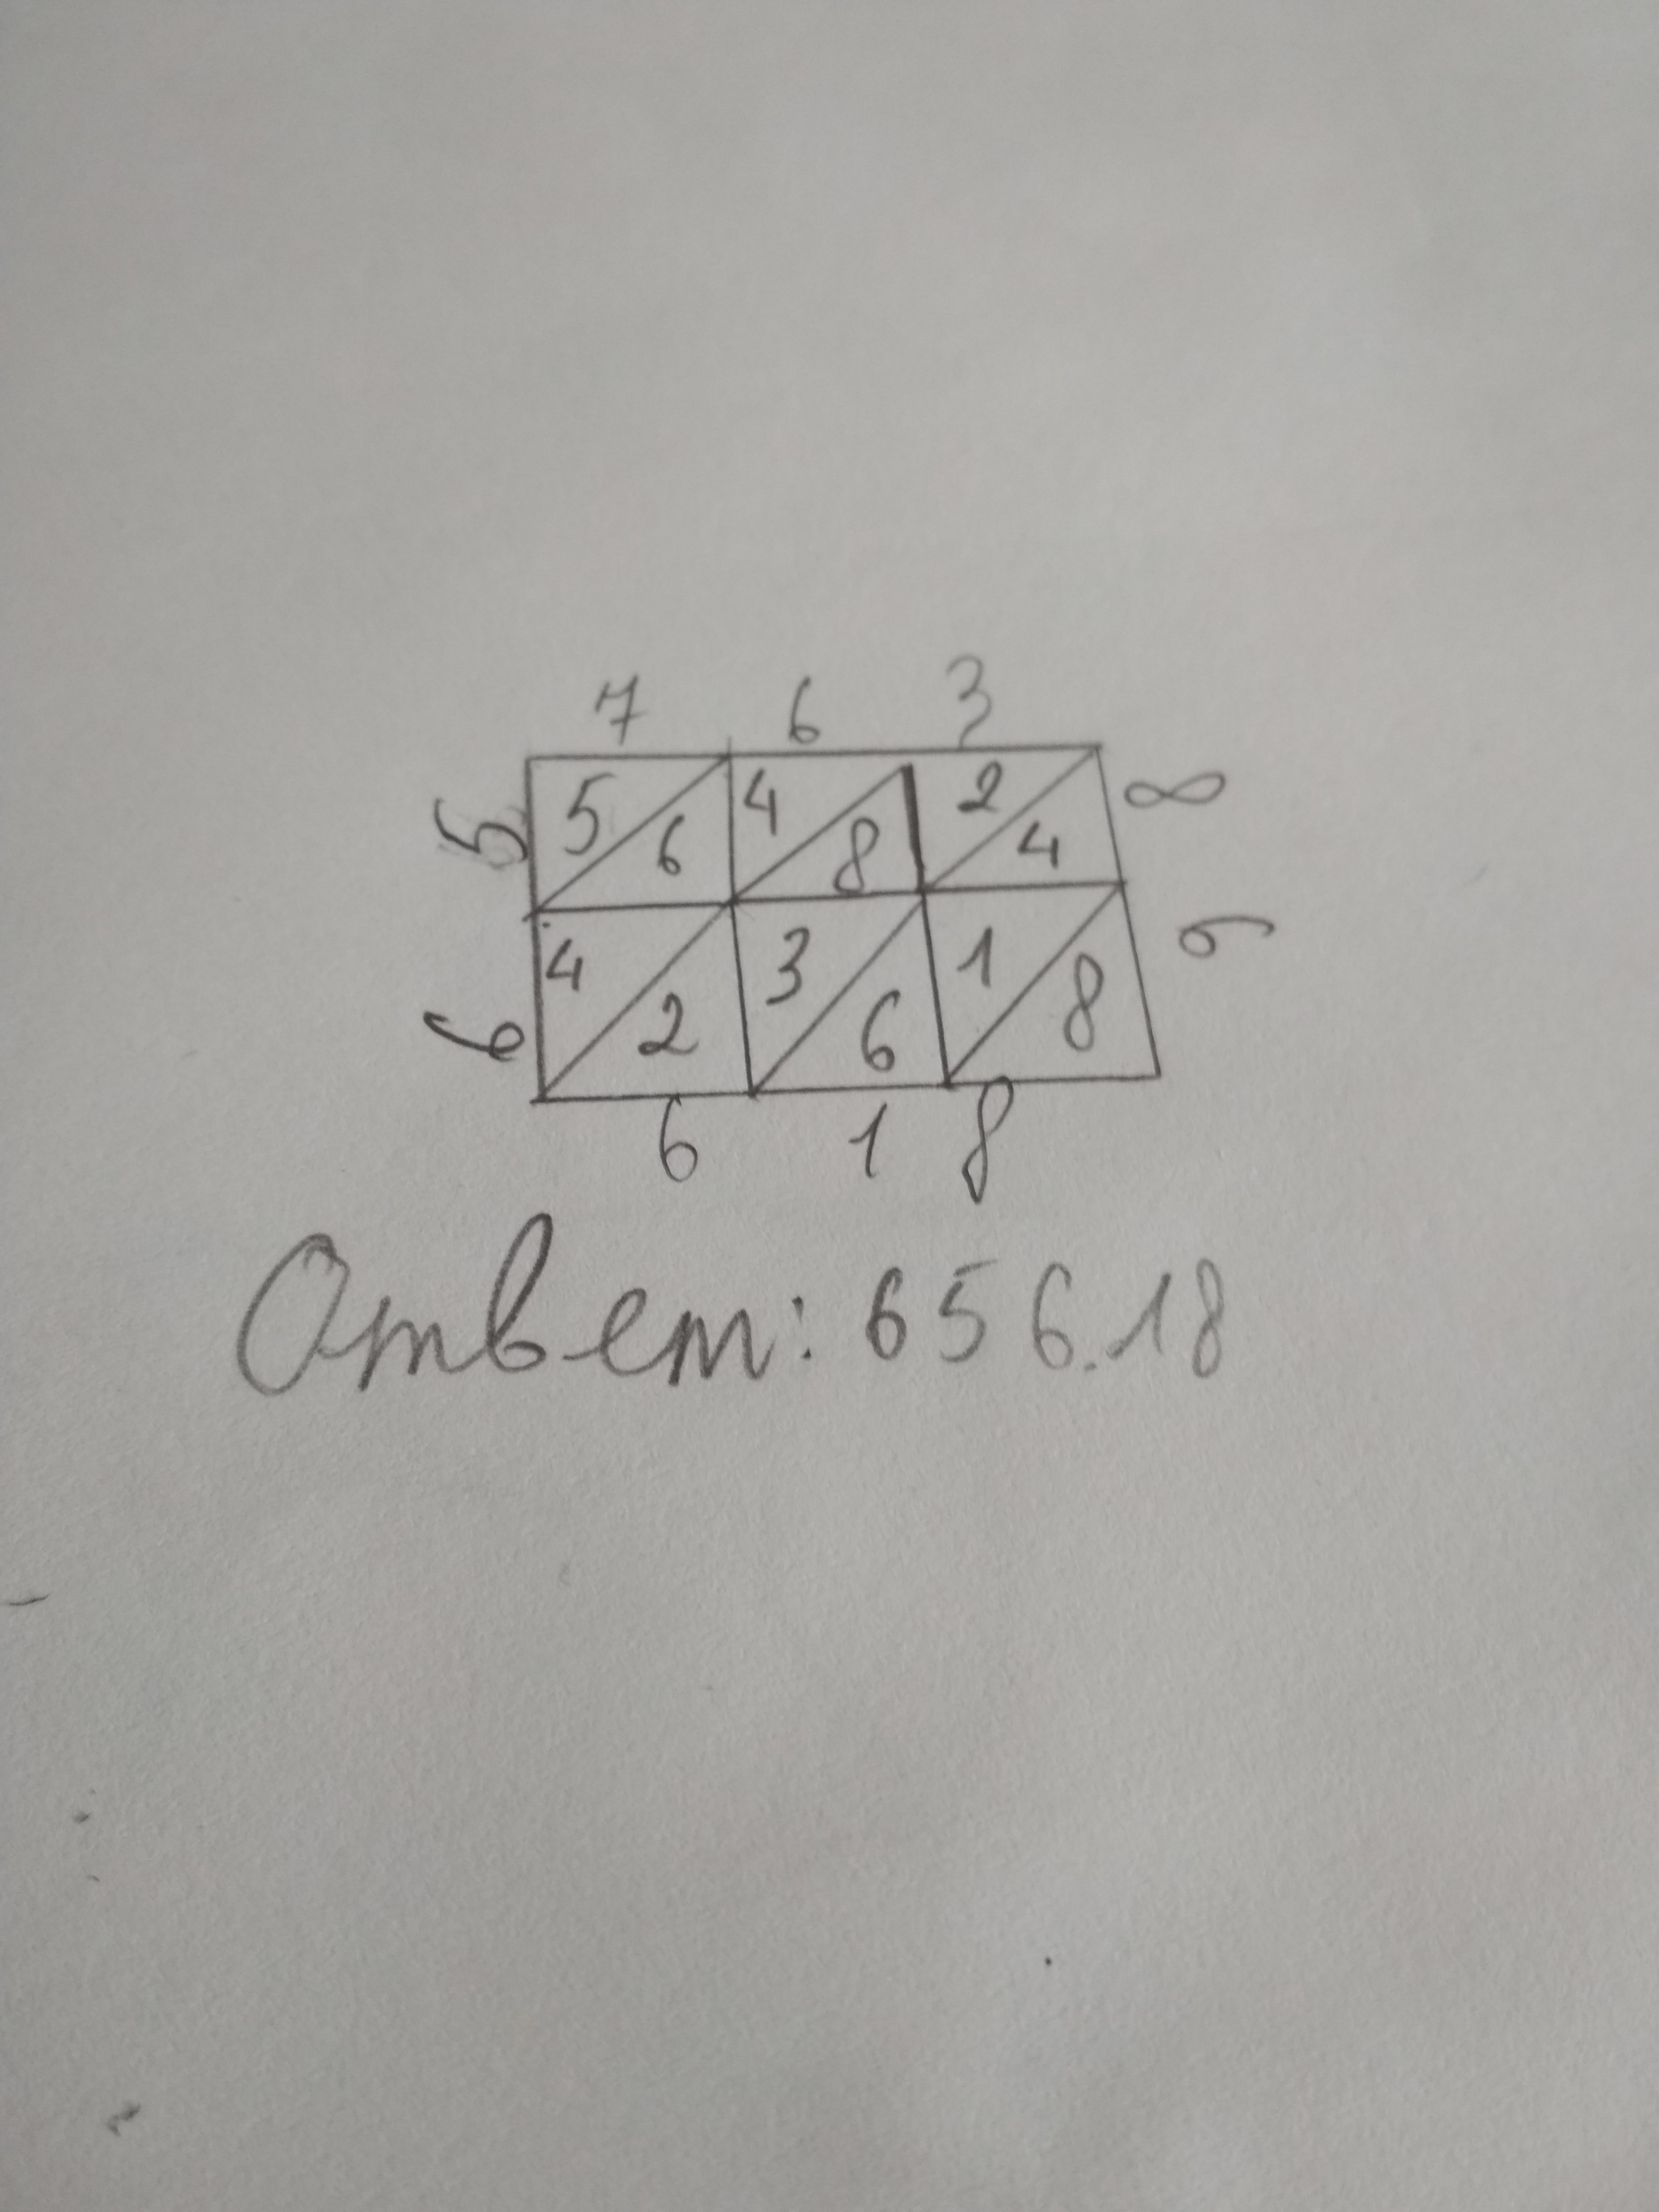 7 6 3
5 5 6 4 8 2 4 8
6 4 2 3 6 1 8 6
6 1 8
Ответ: 656.18